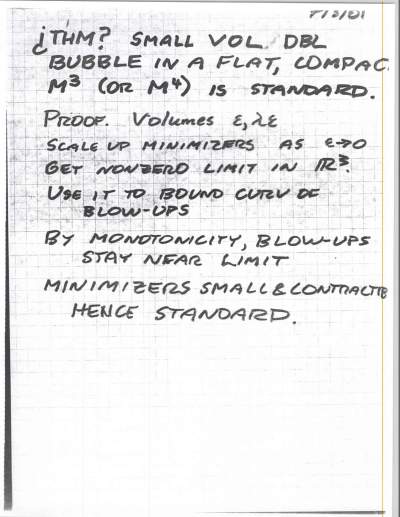 ¿THM? SMALL VOL. DBL
BUBBLE IN A FLAT, COMPAC
M³ (OR M⁴) IS STANDARD.
PROOF. VOLUMES ε, λε
SCALE UP MINIMIZERS AS ε→0
GET NONZERO LIMIT IN ℝ³.
USE IT TO BOUND CURV OF
BLOW-UPS
BY MONOTONICITY, BLOW-UPS
STAY NEAR LIMIT
MINIMIZERS SMALL & CONTRACTIB
HENCE STANDARD.